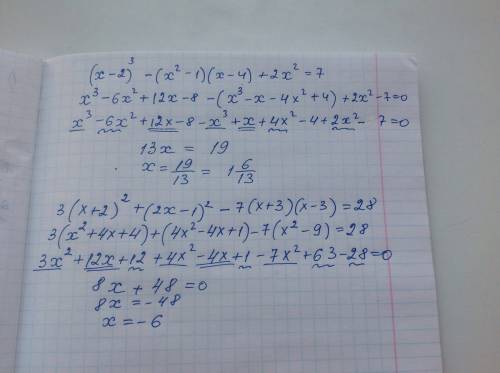 (x-2)³ -(x²-1)(x-4)+2x²=7
x³-6x²+12x-8 -(x³-x-4x²+4)+2x²-7=0
x³-6x²+12x-8-x³+x+4x²-4+2x²- 7=0
13x = 19
x= 19/13 = 1 6/13
3(x+2)²+(2x-1)²-7(x+3)(x-3)=28
3(x²+4x+4)+(4x²-4x+1)-7(x²-9)=28
3x²+12x+12+4x²-4x+1-7x²+63-28=0
8x+48=0
8x=-48
x=-6